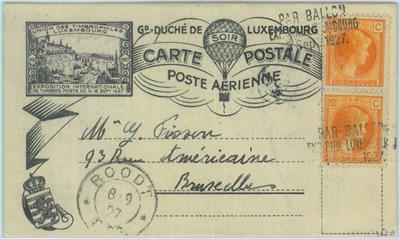 UNION DES TIMBROPHILES
LUXEMBOURG
EXPOSITION INTERNATIONALE
DE TIMBRES POSTE DU 4-8 SEPT 1927
Gᴰ-DUCHÉ DE LUXEMBOURG
SOIR
CARTE POSTALE
POSTE AÉRIENNE
PAR BALLON
Sept. 1927.
LUXEMBOURG
20 C
LUXEMBOURG
PAR BALLON
1927.
Mme Y. Pisson
93 Rue Américaine
Bruxelles
ROODT
8-9
27